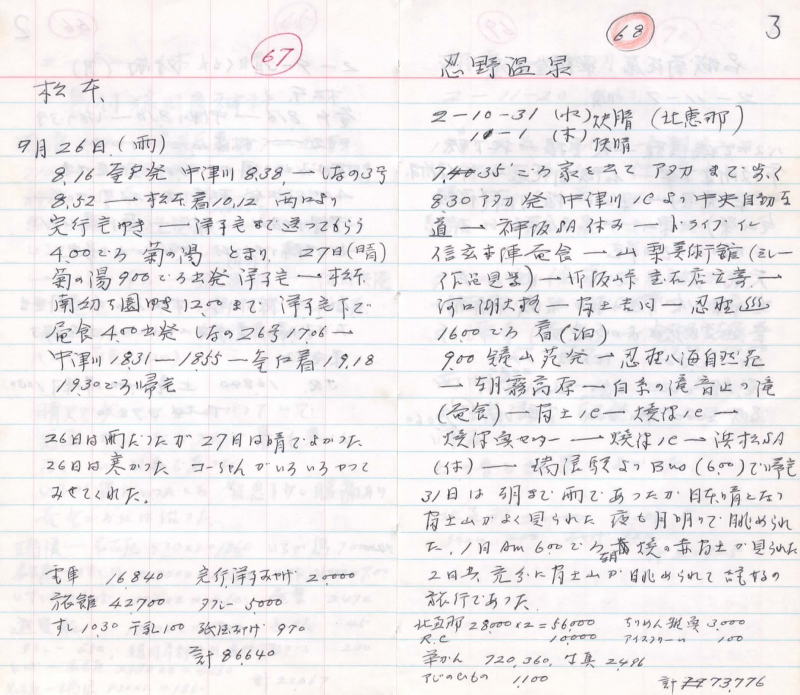 67
松本
9月26日(雨)
8.16 金山発 中津川 8.38 → しなの3号
8.52 → 松本着 10.12 雨により
完行宅ゆき — 洋子宅まで送ってもらう
4.00ごろ 菊の湯 とまり 27日(晴)
菊の湯 9.00ごろ出発 洋子宅 → 松本
南幼ち園ゆき 12.00まで 洋子宅下で
昼食 4.00出発 しなの26号 17.06 →
中津川 18.31 — 18.55 — 金山着 19.18
19.30ごろ帰宅
26日は雨だったが 27日は晴でよかった
26日は寒かった コーちゃんがいろいろやって
みせてくれた.
電車 16840 完行洋子みやげ 20000
旅館 42,700 タクシー 5000
すし 1030 牛乳 100 張屋みやげ 970
計 86,640
68
3
忍野温泉
2-10-31 (水) 快晴 (北恵那)
1 (木) 快晴
35'ごろ家を出て アタカまで歩く
8.30 アタカ発 中津川ICより中央自動車
道 → 神坂SA休み → ドライブイン
信玄本陣昼食 → 山梨美術館 (ミレー
作品見学) → 御坂峠 宝石店立寄 →
河口湖大橋 → 富士吉田 → 忍野
16.00ごろ 着(泊)
9.00 鐘山苑発 → 忍野八海自然苑
→ 朝霧高原 → 白糸の滝音止の滝
(昼食) → 富士IC → 焼津IC →
焼津魚センター → 焼津IC → 浜松SA
(休) → 瑞浪駅より Bus (6.00)で帰宅
31日は朝まで雨であったが日本晴となり
富士山がよく見られた 夜も月明りで眺められ
た. 1日Am 6.00ごろ朝焼の赤富士が見られた
2日共 充分に富士山が眺められて
旅行であった.
北恵那 28,000×2=56,000 ちりめん 3,000
R.C 10,000 アイスクリーム 100
缶かん 720,360, 写真 2,496
アジのひもの 1,100
計 73,776